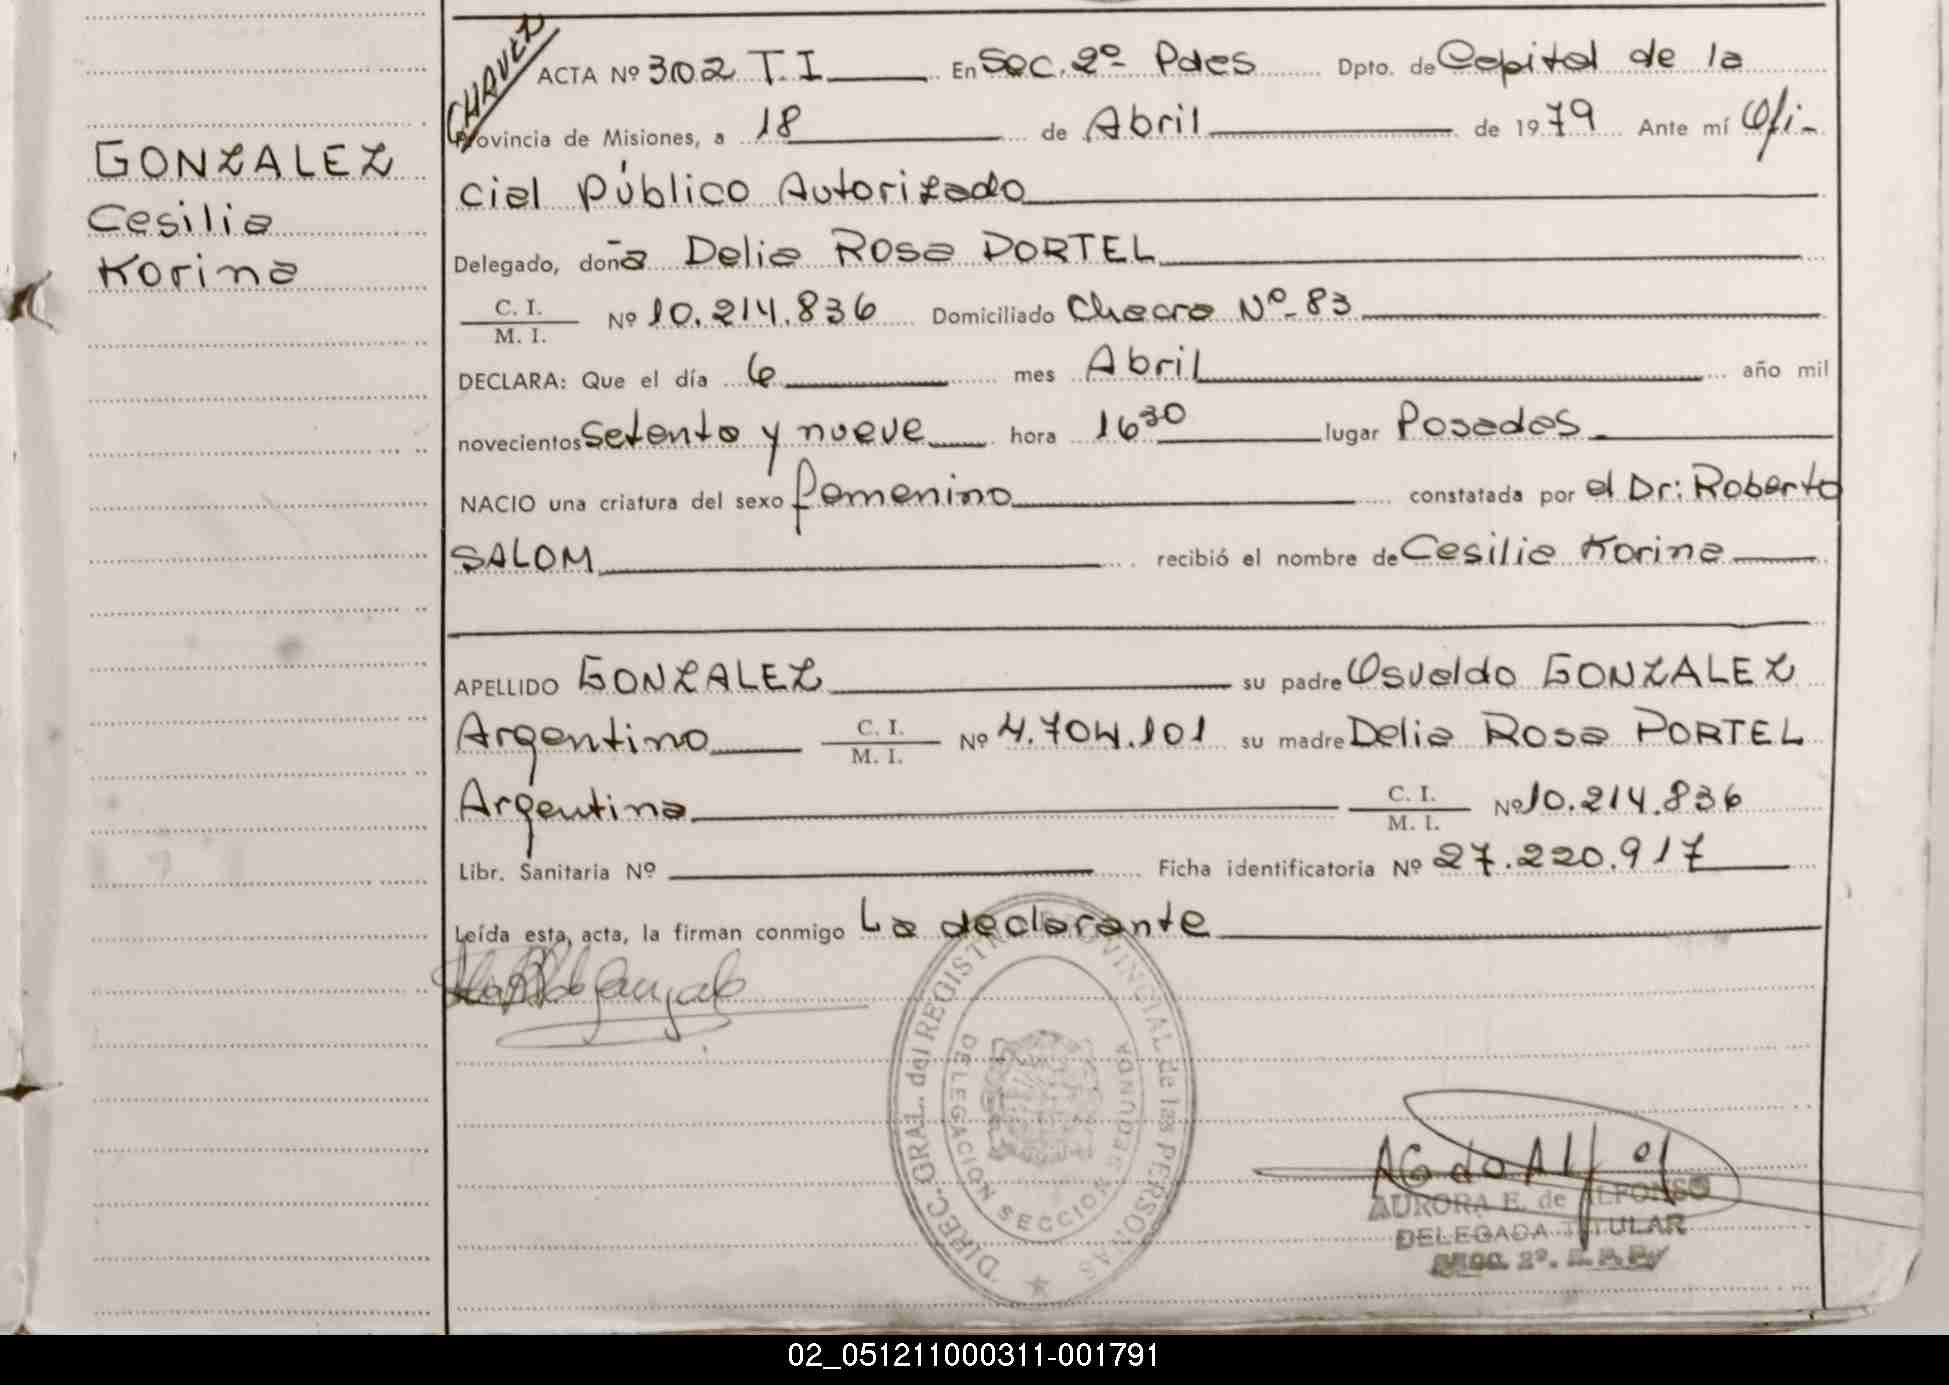 CHAVEZ
GONZALEZ
Cesilia
Korina
ACTA Nº 302 T.I. En Sec. 2º Pdas Dpto. de Capital de la
Provincia de Misiones, a 18 de Abril de 1979 Ante mí Ofi-
cial Público Autorizado
Delegado, doña Delia Rosa PORTEL
C. I.
M. I. Nº 10.214.836 Domiciliado Chacra Nº 83
DECLARA: Que el día 6 mes Abril año mil
novecientos setenta y nueve hora 16³⁰ lugar Posadas
NACIO una criatura del sexo femenino constatada por el Dr: Roberto
SALOM recibió el nombre de Cesilia Korina
APELLIDO GONZALEZ su padre Osvaldo GONZALEZ
Argentino C. I. M. I. Nº 4.704.101 su madre Delia Rosa PORTEL
Argentina C. I. M. I. Nº 10.214.836
Libr. Sanitaria Nº Ficha identificatoria Nº 27.220.917
Leída esta, acta, la firman conmigo La declarante
DIREC. GRAL. del REGISTRO PROVINCIAL de las PERSONAS
DELEGACION SECCION SEGUNDA
AURORA E. de ALFONSO
DELEGADA TITULAR
SECC. 2º.
02_051211000311-001791